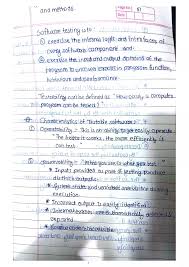 and methods.
Page No. 57
Date
Software testing is to:
① exercise the internal logic and interfaces of
every software component and
② exercise the input and output domains of the
program to uncover errors in program function,
behaviour and performance.
Testability can be defined as "How easily a computer
program can be tested".
Characteristics of "Testable software":
① Operability - This is an ability to get easily operate
"The better it works, the more efficiently it
can test."
② Observability - "What you see is what you test."
* Inputs provided as part of testing produce
distinct outputs.
* System state and variable are visible during
execution.
* Incorrect output is easily identified.
* Internal errors are automatically detected
* Source code is accessible.